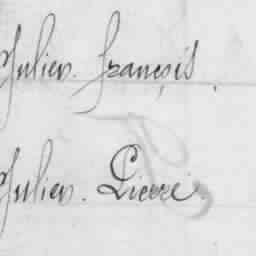 Julien. françois.
Julien. Pierre